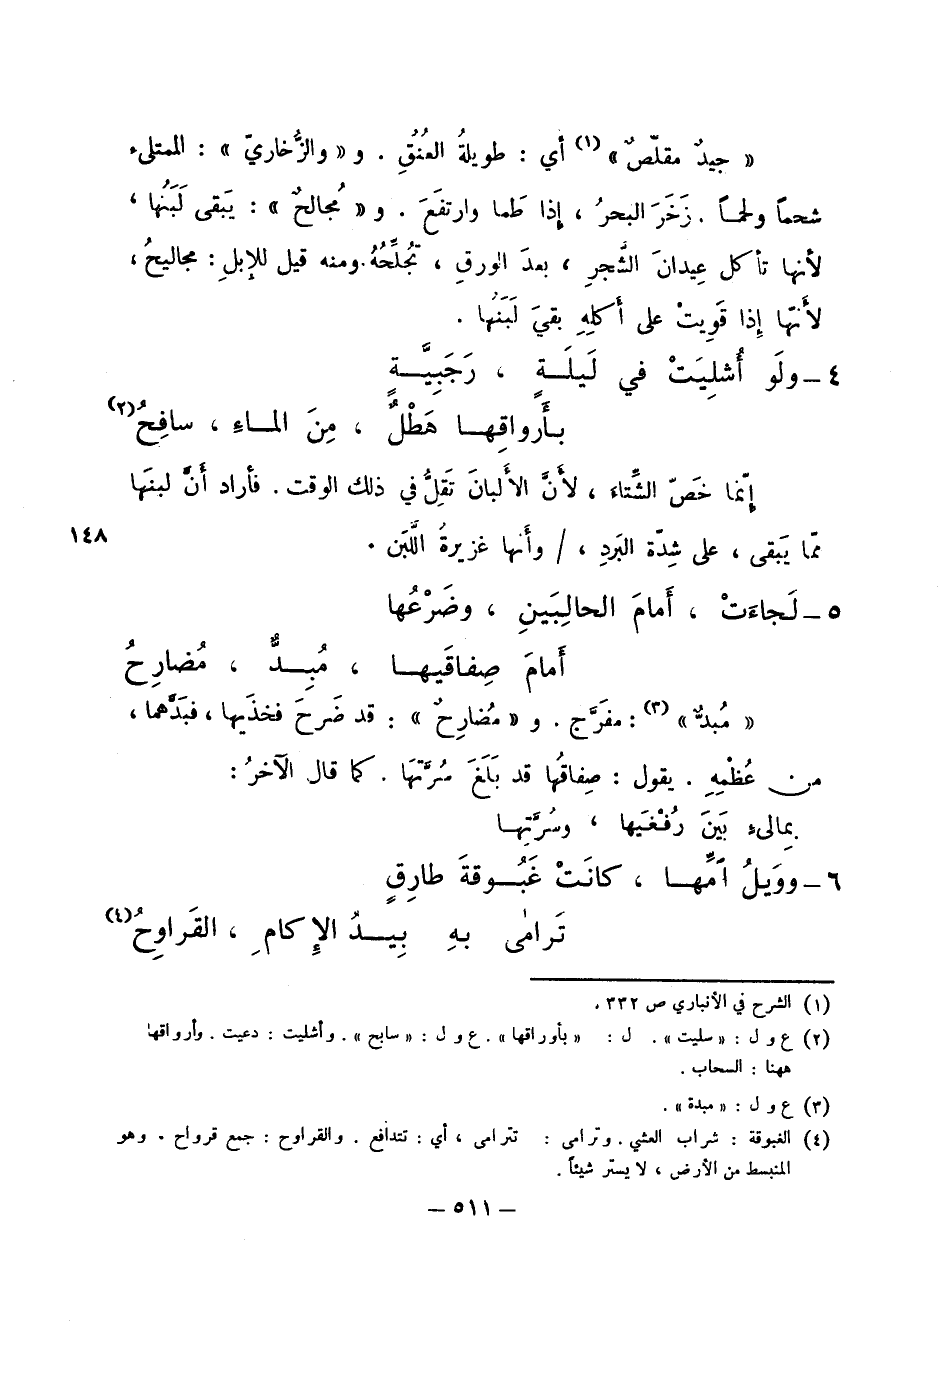 « جيدٌ مقلّصٌ » (١) أي : طويلةُ العنُقِ . و « والزُّخاريّ » : الممتلىء
شحماً ولحماً . زَخَرَ البحرُ ، إذا طما وارتفَعَ . و « مُجالحٌ » : يَبقى لَبَنُها ،
لأنها تأكل عِيدانَ الشَّجرِ ، بعدَ الورقِ ، تجُلِّحُهُ . ومنه قيل للإبلِ : مجاليحُ ،
لأنّها إذا قَوِيتْ على أكلِهِ بقيَ لَبَنُها .
٤ – ولَو أُشلِيَتْ في لَيلَــةٍ ، رَجَبِيَّــةٍ
بأَرواقِهــا هَطْلٌ ، مِنَ المــاءِ ، سافِحُ (٢)
إنّما خَصّ الشّتاءَ ، لأَنَّ الألبانَ تَقِلُّ في ذلك الوقت . فأراد أنّ لبنَها
ممّا يَبقى ، على شِدّة البَردِ ، / وأنها غزيرةُ اللَّبَن .
١٤٨
٥ – لَجاءَتْ ، أَمامَ الحالِبَينِ ، وضَرْعُها
أَمامَ صِفاقَيهــا ، مُبِــدٌّ ، مُضارِحُ
« مُبدٌّ » (٣) : مفَرَّج . و « مُضارِحٌ » : قد ضَرحَ فخذَيها ، فبَدَّهما ،
من عُظْمِهِ . يقول : صِفاقُها قد بَلَغَ سُرَّتَها . كما قال الآخرُ :
بمالىءِ بَينَ رُفْغَيها ، وسُرَّتِهــا
٦ – ووَيلُ اُمِّهــا ، كانَتْ غَبُــوقةَ طارِقٍ
تَرامٰى بهِ بِيــدُ الإكامِ ، القَراوِحُ (٤)
(١) الشرح في الأنباري ص ٣٣٢ .
(٢) ع و ل : « سليت » . ل : « بأوراقها » . ع و ل : « سابح » . وأشليت : دعيت . وأرواقها
ههنا : السحاب .
(٣) ع و ل : « مبدة » .
(٤) الغبوقة : شراب العشي . وترامى : تترامى ، أي : تتدافع . والقراوح : جمع قرواح . وهو
المنبسط من الأرض ، لا يستر شيئاً .
– ٥١١ –